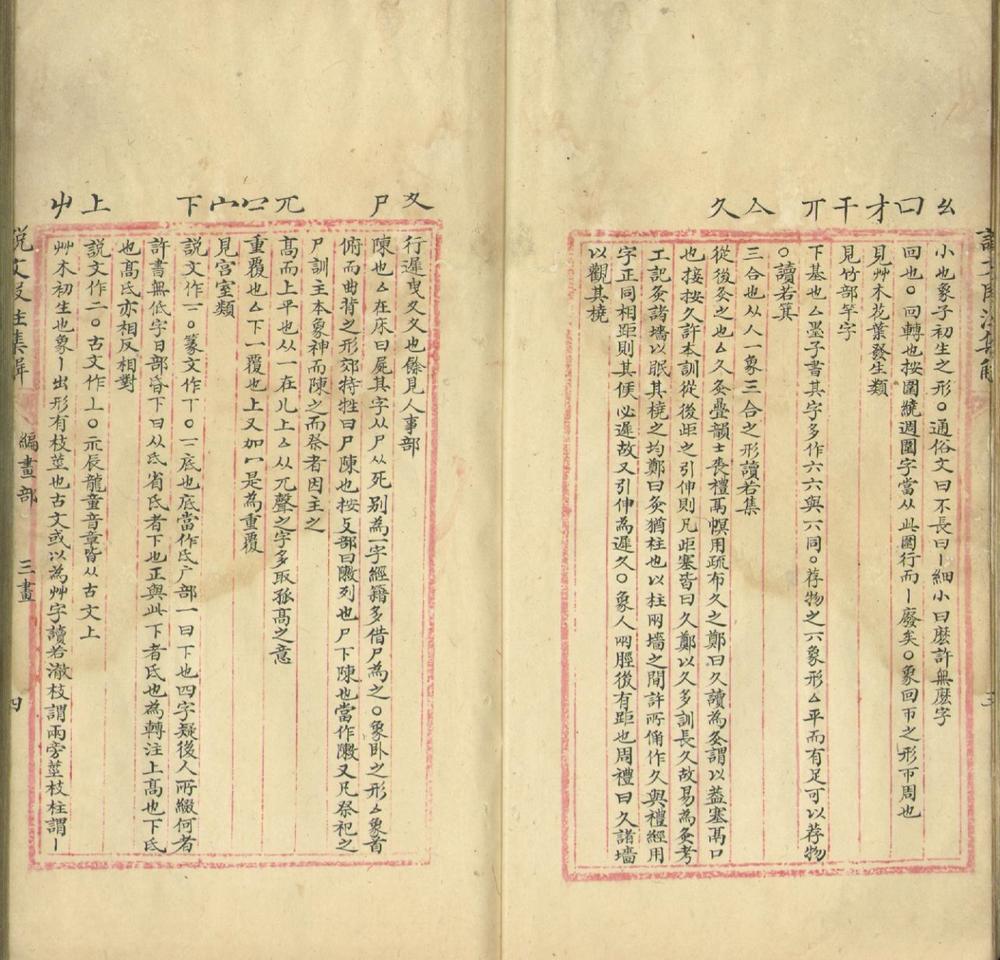 幺囗才干丌亼久
小也象子初生之形○通俗文曰不長曰丨細小曰麼許無麼字
回也○回轉也按圍繞週圍字當从此圍行而丨廢矣○象回帀之形帀周也
見艸木花葉發生類
見竹部竿字
下基也△墨子書其字多作六六與丌同○荐物之丌象形△平而有足可以荐物
○讀若箕
三合也从人一象三合之形讀若集
從後灸之也△久灸疊韻士喪禮鬲幎用疏布久之鄭曰久讀為灸謂以蓋塞鬲口
也接按久許本訓從後距之引伸則凡距塞皆曰久鄭以久多訓長久故易為灸考
工記灸諸墻以眂其橈之均鄭曰灸猶柱也以柱兩墻之間許所偁作久與禮經用
字正同相距則其候必遲故又引伸為遲久○象人兩脛後有距也周禮曰久諸墻
以觀其橈
夊尸兀冂宀下上屮
行遲曳夊夊也餘見人事部
陳也△在床曰屍其字从尸从死别為一字經籍多借尸為之○象卧之形△象首
俯而曲背之形郊特牲曰尸陳也按攴部曰敶列也尸下陳也當作敶又凡祭祀之
尸訓主本象神而陳之而祭者因主之
高而上平也从一在儿上△从兀聲之字多取孤高之意
重覆也△下一覆也上又加冖是為重覆
見宮室類
說文作二○篆文作丅○二底也底當作氐广部一曰下也四字疑後人所綴何者
許書無低字日部昏下曰从氐省氐者下也正與此下者氐也為轉注上高也下氐
也高氐亦相反相對
說文作二○古文作丄○示辰龍童音章皆从古文上
艸木初生也象丨出形有枝莖也古文或以為艸字讀若徹枝謂兩旁莖枝柱謂丨
說文段注集解
編畫部
三畫
四